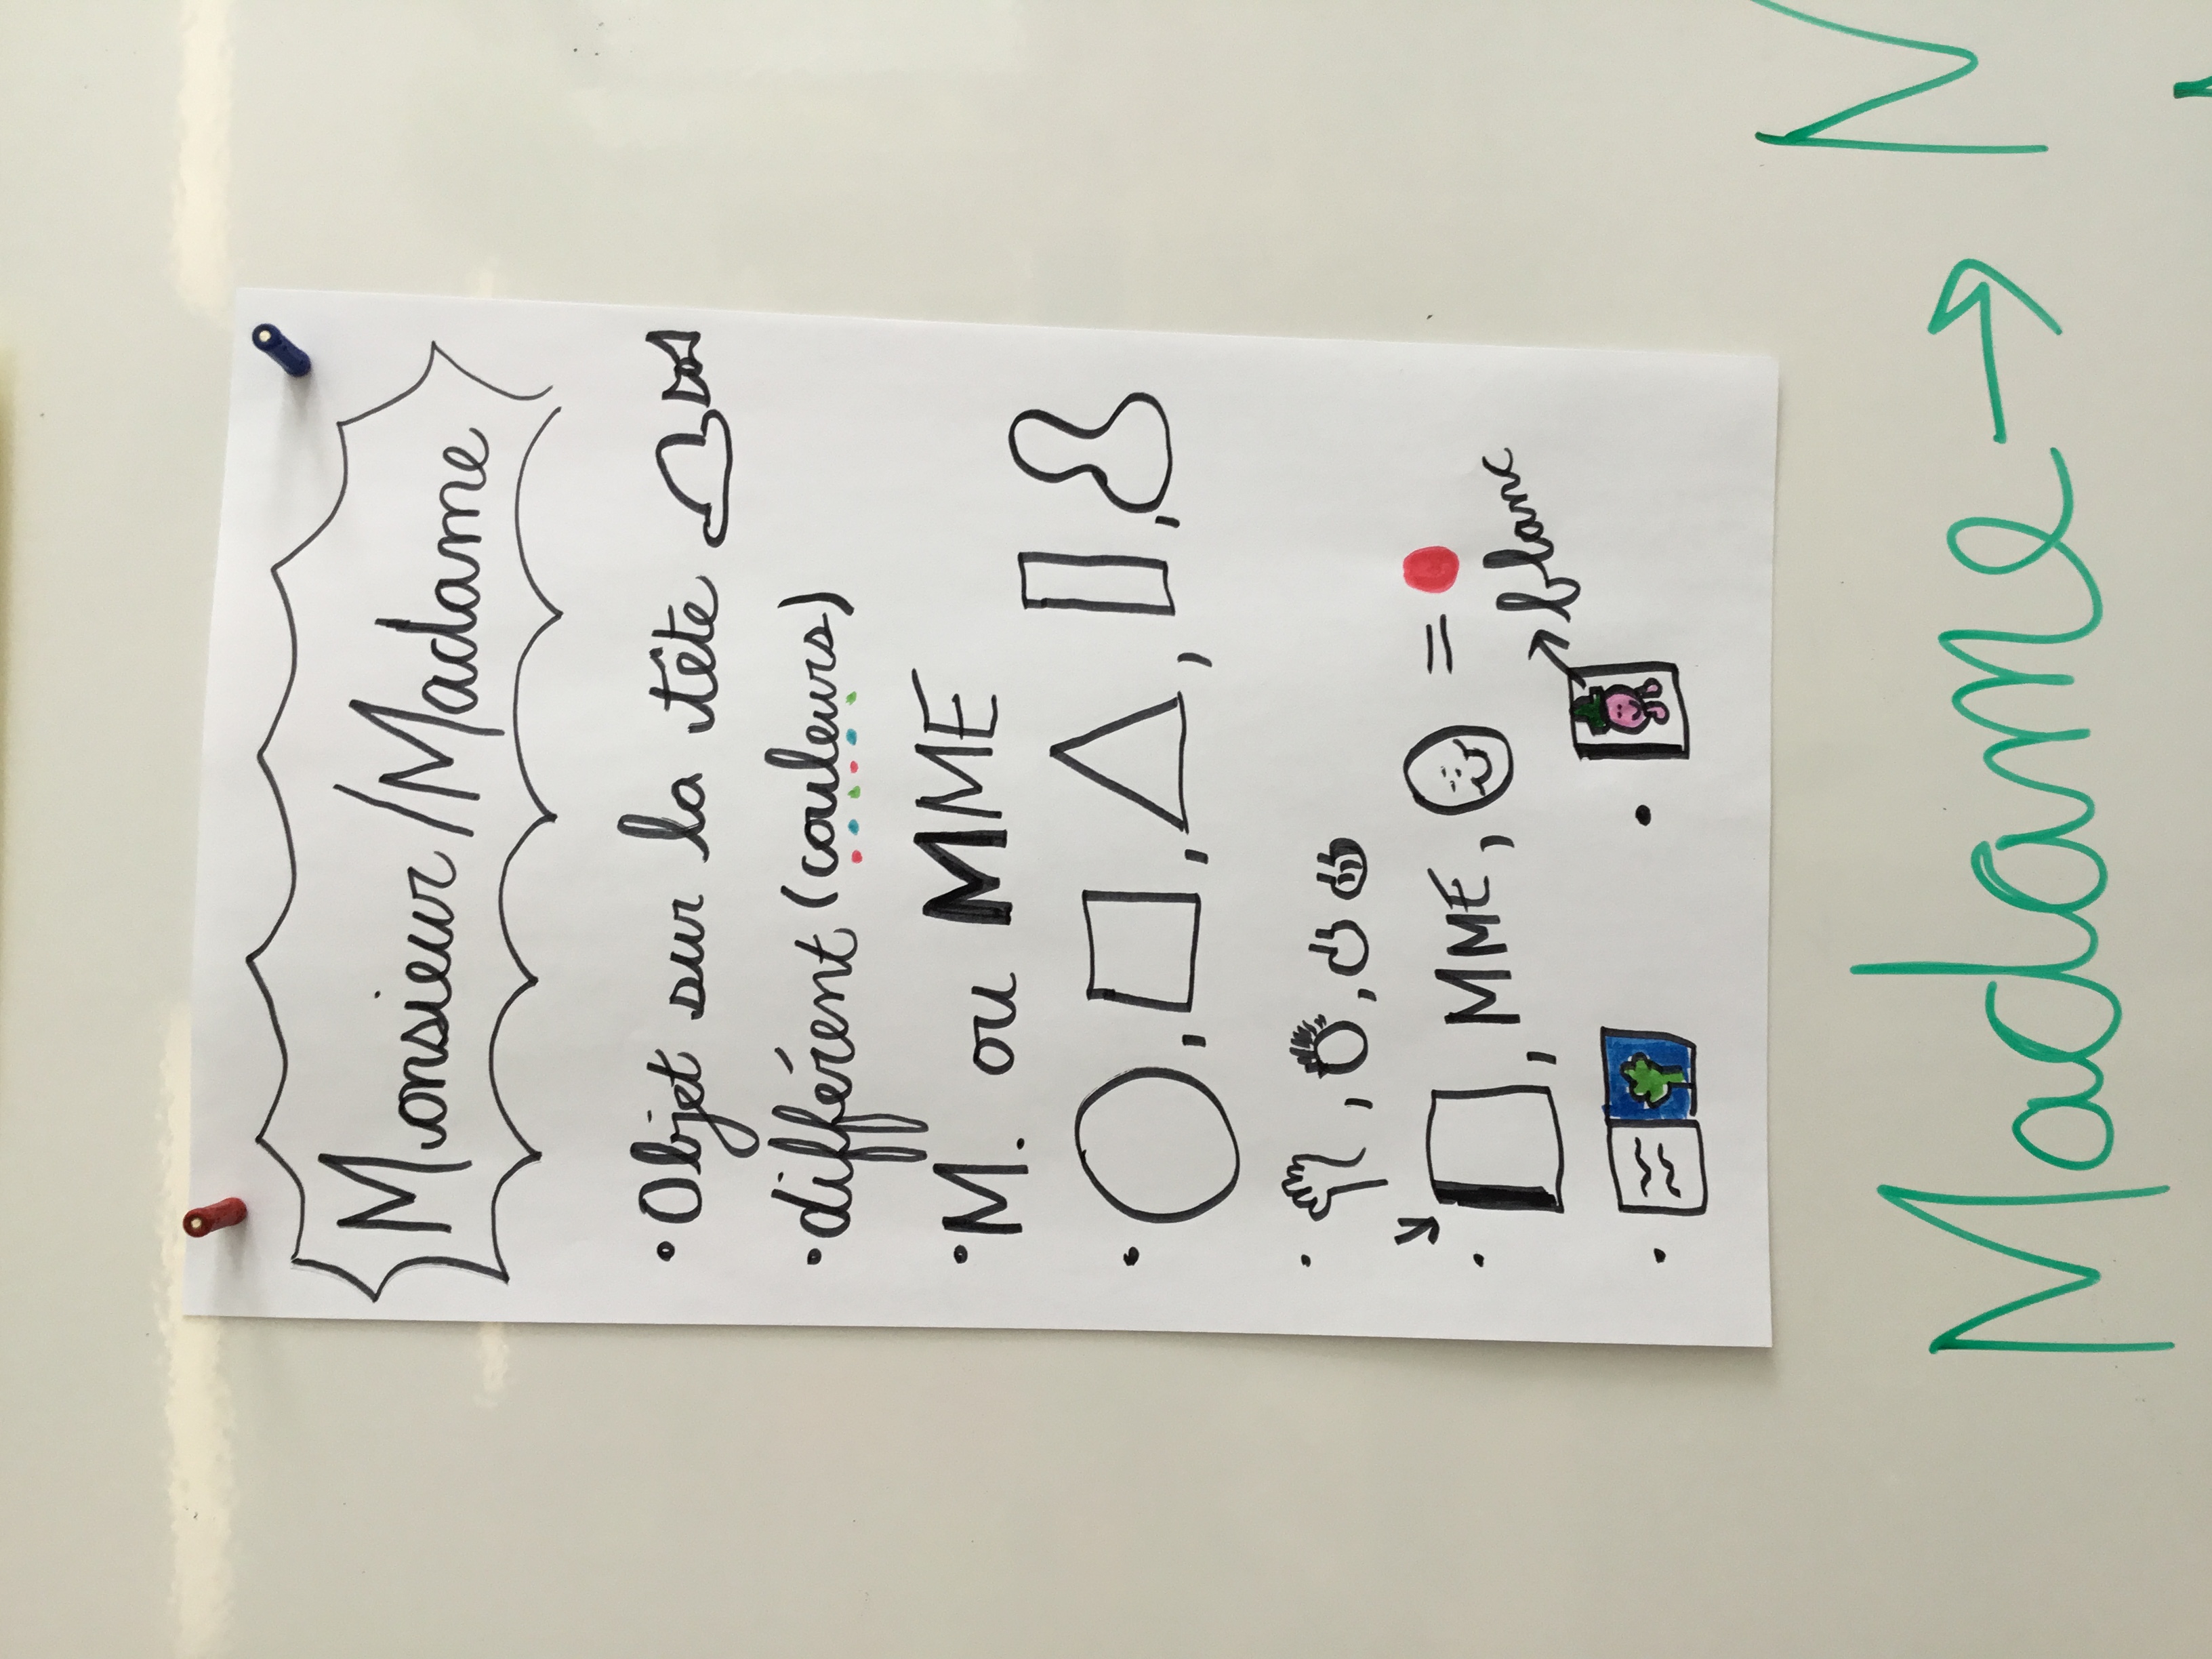 Monsieur / Madame
• Objet sur la tête
• différent (couleurs)
• M. ou MME
• , , , ,
• , , 
• , MME, =
blanc
Madame → M